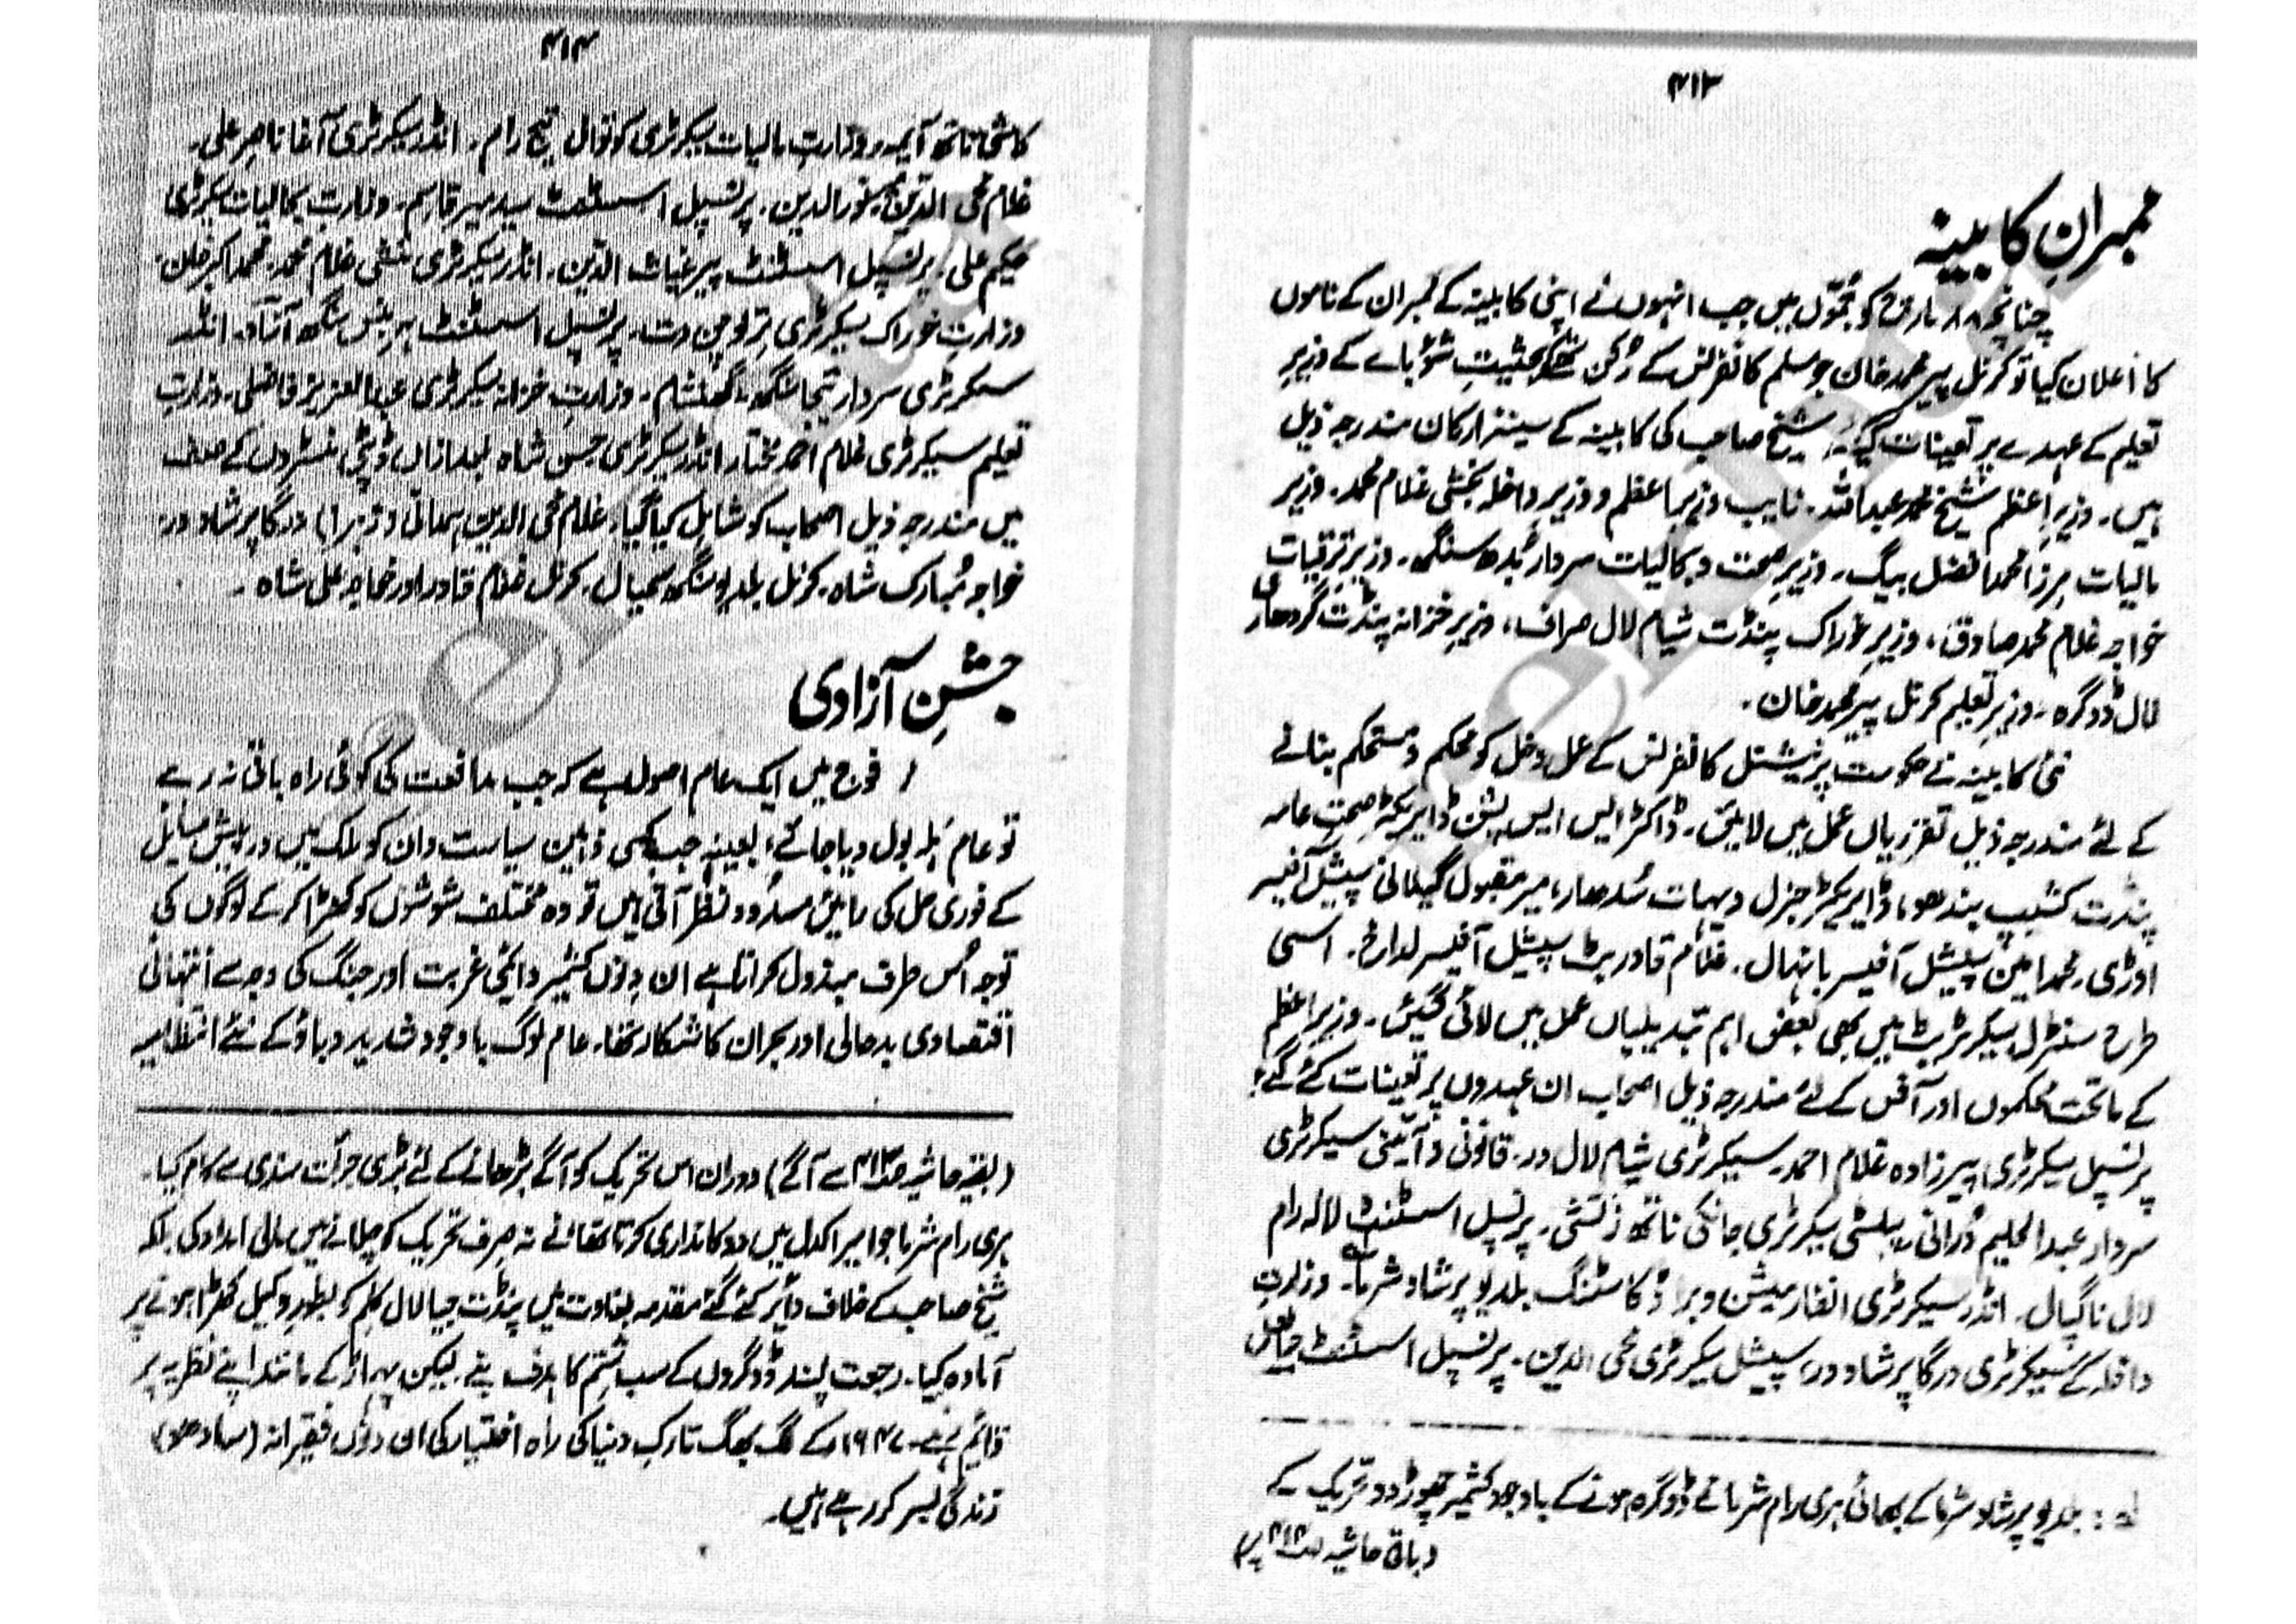 ۴۱۳
ممبرانِ کابینہ
چنانچہ ۱۸ مارچ کو جموّں میں جب انہوں نے اپنی کابینہ کے ممبران کے ناموں
کا اعلان کیا تو کرنل پیر محمد خان جو مسلم کانفرنس کے رُکن تھے کو بحثیتِ کے وزیرِ
تعلیم کے عہدے پر تعینات کیے گئے شیخ صاحب کی کابینہ کے سینئر ارکان مندرجہ ذیل
ہیں۔ وزیرِ اعظم شیخ محمد عبداللہ۔ نایب وزیرِ اعظم و وزیرِ داخلہ بخشی غلام محمد۔ وزیر
مالیات مرزا محمد افضل بیگ۔ وزیرِ صحت و بحالیات سردار بُدھ سنگھ۔ وزیرِ ترقیات
خواجہ غلام محمد صادق، وزیرِ خوراک پنڈت شیام لال صراف، وزیرِ خزانہ پنڈت گردھاری
لال ڈوگرہ۔ وزیرِ تعلیم کرنل پیر محمد خان۔
نئی کابینہ نے حکومت پر نیشنل کانفرنس کے عمل دخل کو محکم و مستحکم بنانے
کے لئے مندرجہ ذیل تقرریاں عمل میں لائیں۔ ڈاکٹر ایس ایس پشن ڈایریکٹر صحتِ عامہ
پنڈت کشیپ بندھو، ڈایریکٹر جنرل دیہات سُدھار، میر مقبول گیلانی سپیشل آفیسر
اوڑی۔ محمد امین سپیشل آفیسر بانہال۔ غلام قادر بٹ سپیشل آفیسر لداخ۔ اسی
طرح سنٹرل سیکرٹریٹ میں بھی بعض اہم تبدیلیاں عمل میں لائی گئیں۔ وزیرِ اعظم
کے ماتحت محکموں اور آفس کے لئے مندرجہ ذیل اصحاب ان عہدوں پر تعینات کئے گئے؛
پرنسپل سیکرٹری پیرزادہ غلام احمد۔ سیکرٹری شیام لال در۔ قانونی و آئینی سیکرٹری
سردار عبدالحلیم دُرانی، پبلسٹی سیکرٹری جانکی ناتھ زتشی۔ پرنسپل اسسٹنٹ لالہ رام
لال ناگپال۔ انڈر سیکرٹری انفارمیشن و براڈکاسٹنگ بلدیو پرشاد شرما لہ۔ وزارتِ
داخلہ کے سیکرٹری درگا پرشاد در، سپیشل سیکرٹری محی الدین۔ پرنسپل اسسٹنٹ
لہ: بلدیو پرشاد شرما کے بھائی ہری رام شرما نے ڈوگرہ ہونے کے باوجود کشمیر چھوڑ دو تحریک کے
(باقی حاشیہ ص۴۱۴ پر)
۴۱۴
کاشی ناتھ آیمہ، وزارتِ مالیات سیکرٹری کوتوال تیج رام۔ انڈر سیکرٹری آغا ناصر علی۔
غلام محی الدین، نور الدین۔ پرنسپل اسسٹنٹ سید میر قاسم۔ وزارتِ بحالیات سیکرٹری
حکیم علی، پرنسپل اسسٹنٹ پیر غیاث الدین۔ انڈر سیکرٹری منشی غلام محمد، محمد اکبر خان۔
وزارتِ خوراک سیکرٹری ترلوچن دت۔ پرنسپل اسسٹنٹ ہربنس سنگھ آزاد۔ انڈر
سیکرٹری سردار تیجا سنگھ، گھنشام۔ وزارتِ خزانہ سیکرٹری عبدالعزیز فاضلی۔ وزارتِ
تعلیم سیکرٹری غلام احمد مختار انڈر سیکرٹری حسن شاہ بعد ازاں ڈپٹی منسٹروں کے صف
میں مندرجہ ذیل اصحاب کو شامل کیا گیا۔ غلام محی الدین ہمدانی (زہرا) درگا پرشاد در:
خواجہ مُبارک شاہ۔ کرنل بلدیو سنگھ سمیال۔ کرنل غلام قادر اور خواجہ علی شاہ۔
جشنِ آزادی
فوج میں ایک عام اصول ہے کہ جب مدافعت کی کوئی راہ باقی نہ رہے
تو عام ہلہ بول دیا جائے؛ بعینہٖ جب کسی ذہین سیاست دان کو ملک میں درپیش مسایل
کے فوری حل کی راہیں مسدود نظر آتی ہیں تو وہ مختلف شوشوں کو کھڑا کر کے لوگوں کی
توجہ اُس طرف مبذول کراتا ہے ان دِنوں کشمیر دائمی غربت اور جنگ کی وجہ سے انتہائی
اقتصادی بدحالی اور بحران کا شکار تھا۔ عام لوگ باوجود شدید دباؤ کے نئے انتظامیہ
(بقیہ حاشیہ ص۴۱۳ سے آگے) دوران اس تحریک کو آگے بڑھانے کے لئے بڑی جرأت مندی سے کام کیا۔
ہری رام شرما جو امیرا کدل میں دوکانداری کرتا تھا نے نہ صرف تحریک کو چلانے میں مالی امداد کی بلکہ
شیخ صاحب کے خلاف دائر کئے گئے مقدمہ بغاوت میں پنڈت جیا لال کلم کو بطورِ وکیل کھڑا ہونے پر
آمادہ کیا۔ رجعت پسند ڈوگروں کے سب و شتم کا ہدف بنے۔ لیکن پہاڑ کے مانند اپنے نظریہ پر
قایم رہے۔ ۱۹۴۷ء کے لگ بھگ تارکِ دنیا کی راہ اختیار کی ان دِنوں فقیرانہ (سادھو)
زندگی بسر کر رہے ہیں۔